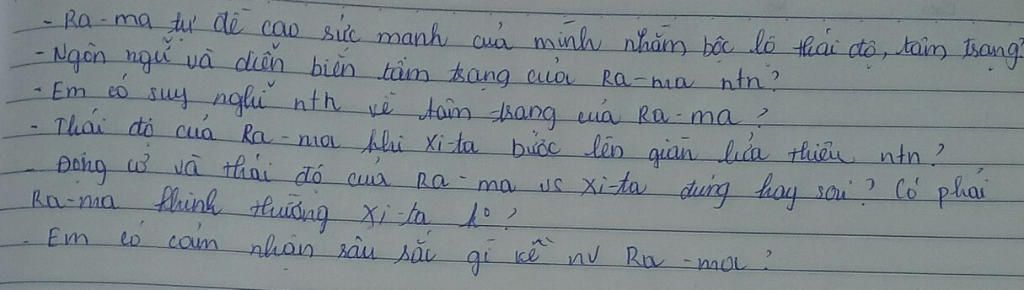 - Ra-ma tự đề cao sức mạnh của mình nhằm bộc lộ thái độ, tâm trạng?
- Ngôn ngữ và diễn biến tâm trạng của Ra-ma ntn?
- Em có suy nghĩ ntn về tâm trạng của Ra-ma?
- Thái độ của Ra-ma khi Xi-ta bước lên giàn lửa thiêu ntn?
- Động cơ và thái độ của Ra-ma vs Xi-ta đúng hay sai? Có phải
Ra-ma khinh thường Xi-ta ko?
- Em có cảm nhận sâu sắc gì về nv Ra-ma?